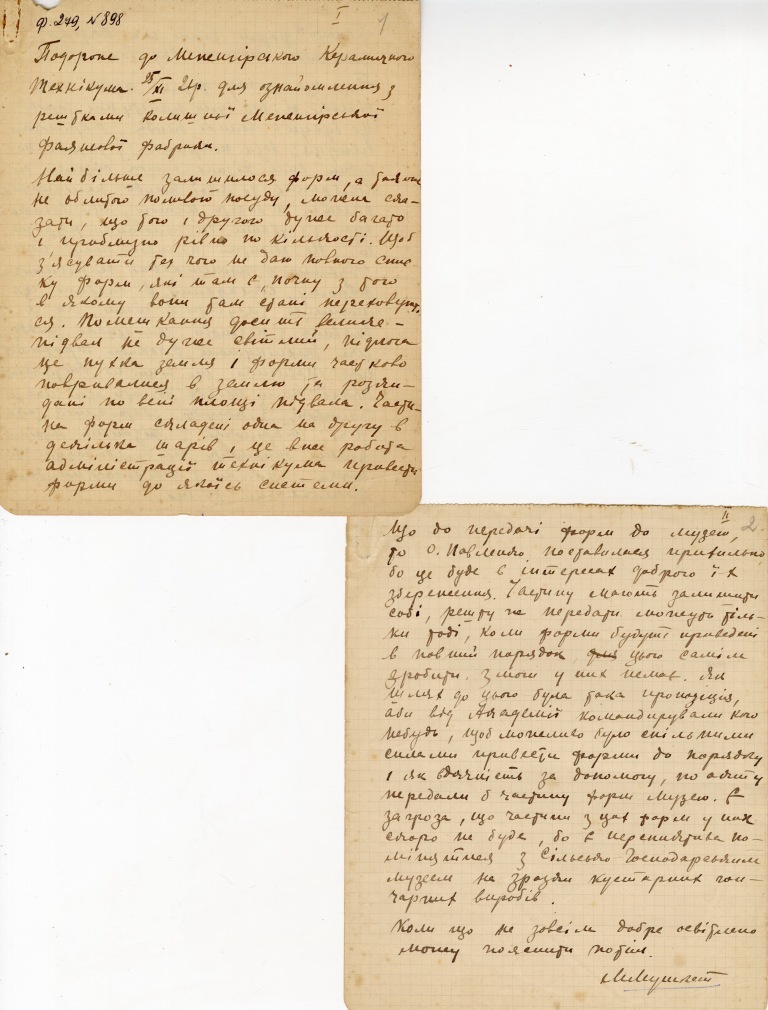 ф. 279, № 898
I
1
Подорож до Межигірського Керамічного
Технікума. 25/XI 21р. для ознайомлення з
рештками колишньої Межигірської
фаянсової фабрики.
Найбільше залишилося форм, а також
не облитого поливою посуду, можна ска-
зати, що того і другого дуже багато
і приблизно рівно по кількості. Щоб
з'ясувати чого не даю повного спис-
ку форм, які там є, почну з того
в якому вони там стані переховують
ся. Помешкання досить велике –
підвал не дуже світлий, підлога
це пухка земля і форми частково
повривалися в землю та розки-
дані по всій площі підвала. Части-
на форм складені одна на другу в
декілька шарів, це вже робота
адміністрації технікума привести
форми до якоїсь системи.
II
2.
Що до передачі форм до музею,
то О. Павленко поставилася прихильно,
бо це буде в інтересах доброго їх
збереження. Частину мають залишити
собі, решту ж передати можуть тіль-
ки тоді, коли форми будуть приведені
в повний порядок, цього самім
зробити змоги у них немає. Як
шлях до цього була така пропозиція,
аби від Академії командирували кого
небудь, щоб можливо було спільними
силами привести форми до порядку
і як вдячність за допомогу, по акту
передали б частину форм Музею. Є
загроза, що частини з цих форм у них
скоро не буде, бо є перспектива по-
мінятися з Сільсько-Господарським
музеєм на зразки кустарних гон-
чарних виробів.
Коли що не зовсім добре освітлено
можу пояснити потім.